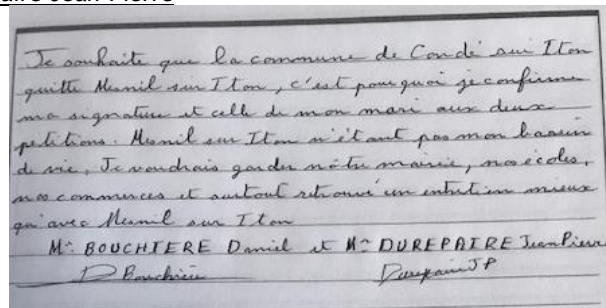 aire Jean-Pierre
Je souhaite que la commune de Condé sur Iton
quitte Mesnil sur Iton, c'est pourquoi je confirme
ma signature et celle de mon mari aux deux
petitions. Mesnil sur Iton n'étant pas mon bassin
de vie, Je voudrais garder nôtre mairie, nos écoles,
nos commerces et surtout retrouvé un entretien mieux
qu'avec Mesnil sur Iton
Mr BOUCHIERE Daniel et Mr DUREPAIRE Jean Pierre
D Bouchière Durepaire JP